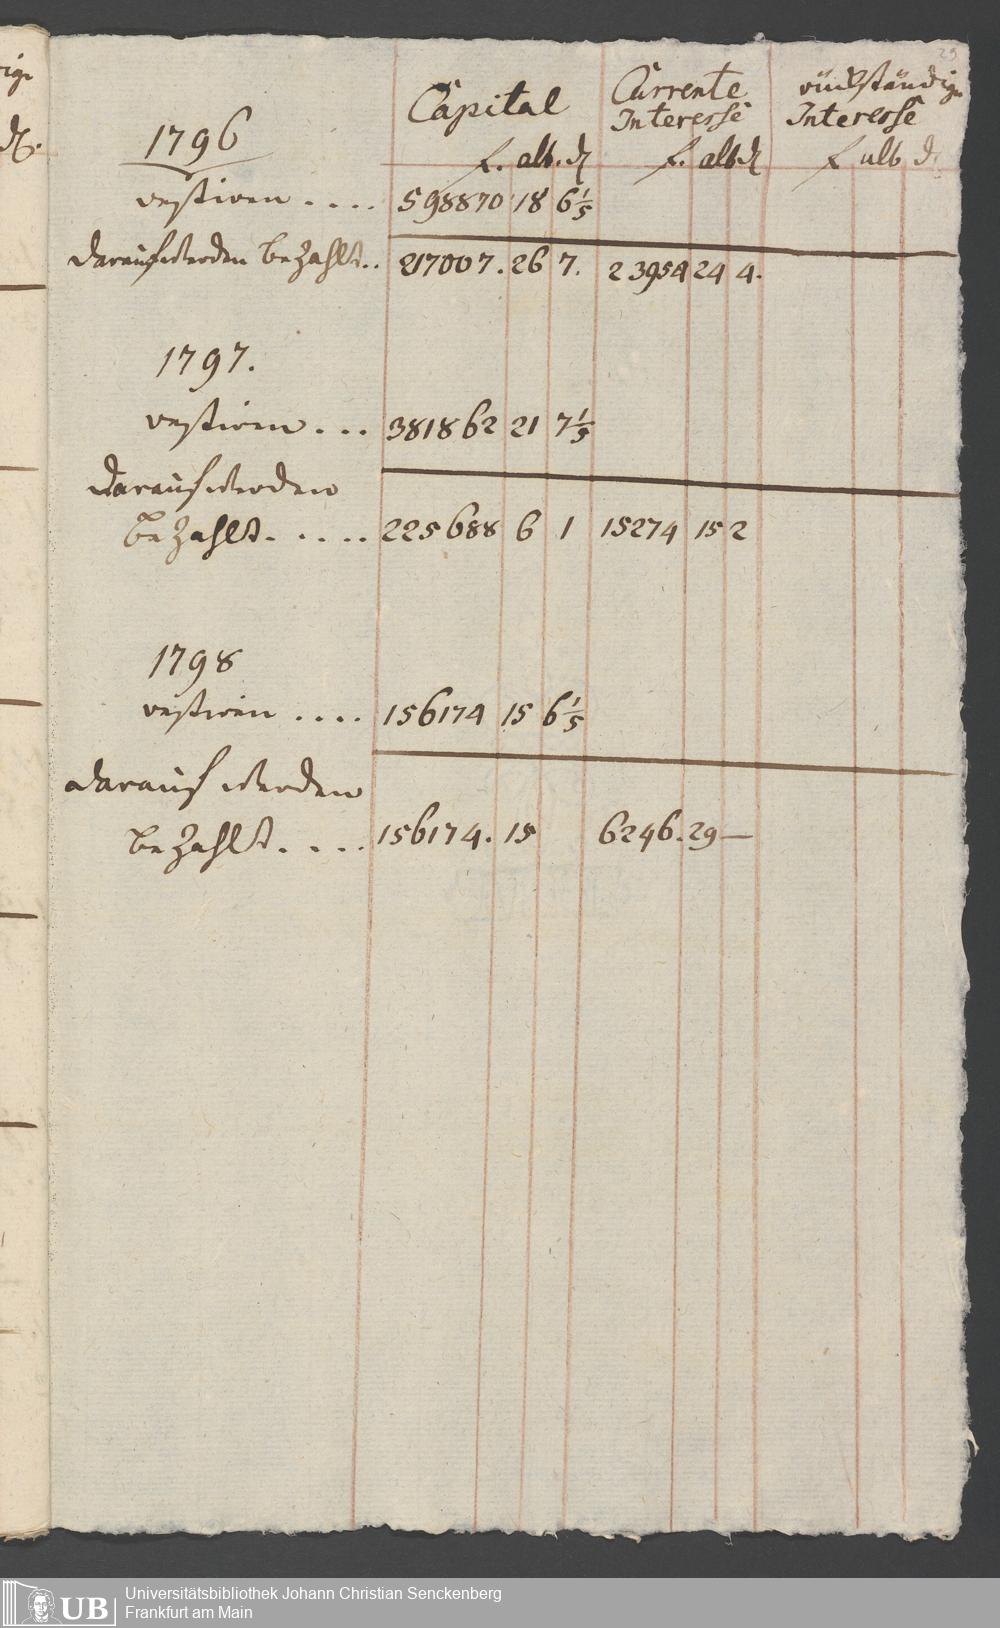 29
Capital
Currente
Interesse
rückständige
Interesse
1796
f. alb. d
f. alb d
f alb d
restiren .... 598870 18 6 1/5
darauf werden bezahlt.. 217007. 26 7. 23954 24 4.
1797.
restiren ... 381862 21 7 1/5
darauf werden
bezahlt. .... 225688 6 1 15274 15 2
1798
restiren .... 156174 15 6 1/5
darauf werden
bezahlt. ... 156174. 15 6246. 29 —
UB
Universitätsbibliothek Johann Christian Senckenberg
Frankfurt am Main